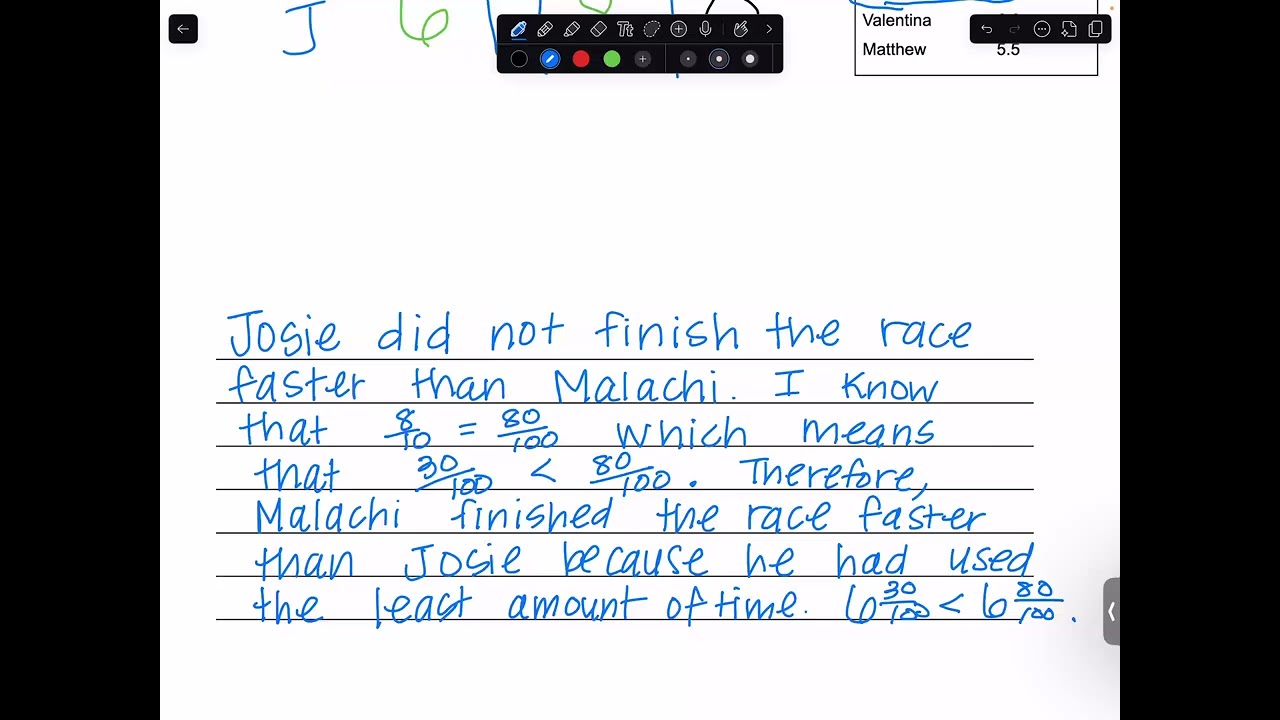 J 6
Valentina
Matthew 5.5
Tt
Josie did not finish the race
faster than Malachi. I know
that 8/10 = 80/100 which means
that 30/100 < 80/100. Therefore,
Malachi finished the race faster
than Josie because he had used
the least amount of time. 6 30/100 < 6 80/100.